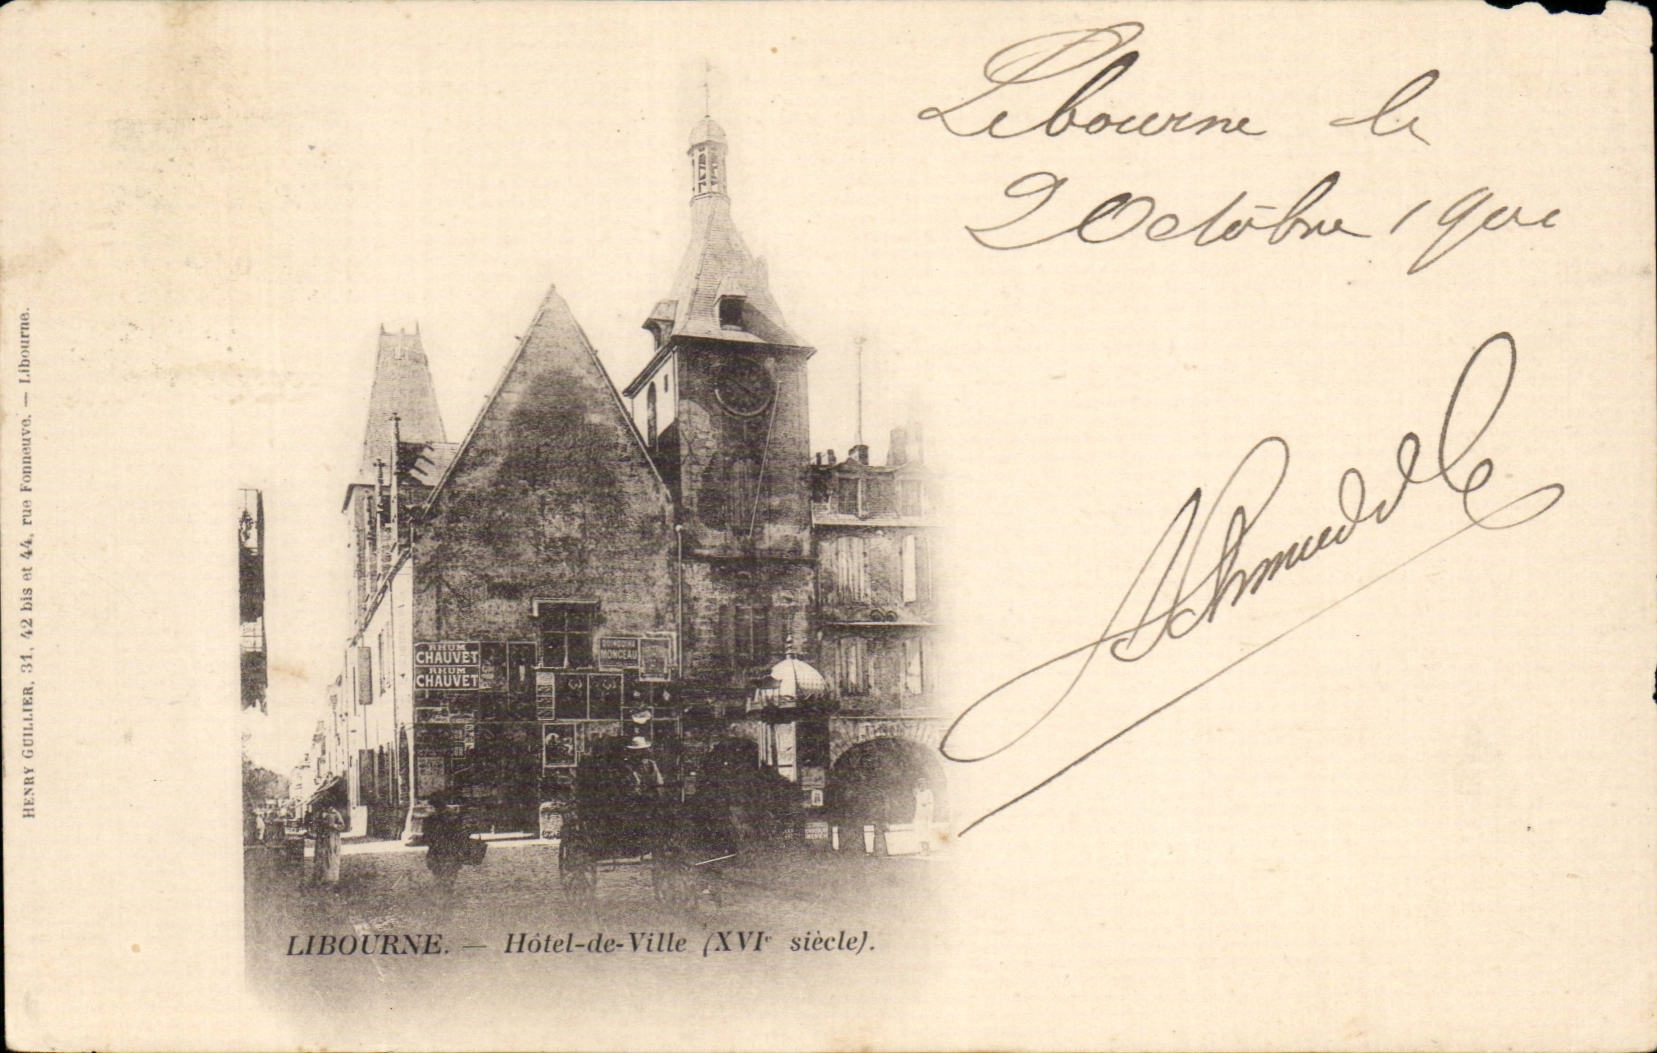 Libourne le
2 Octobre 1900
HENRY GUILLIER, 31, 42 bis et 44, rue Fonneuve. — Libourne.
RHUM
CHAUVET
RHUM
CHAUVET
MONCEAU
LIBOURNE. — Hôtel-de-Ville (XVIe siècle).